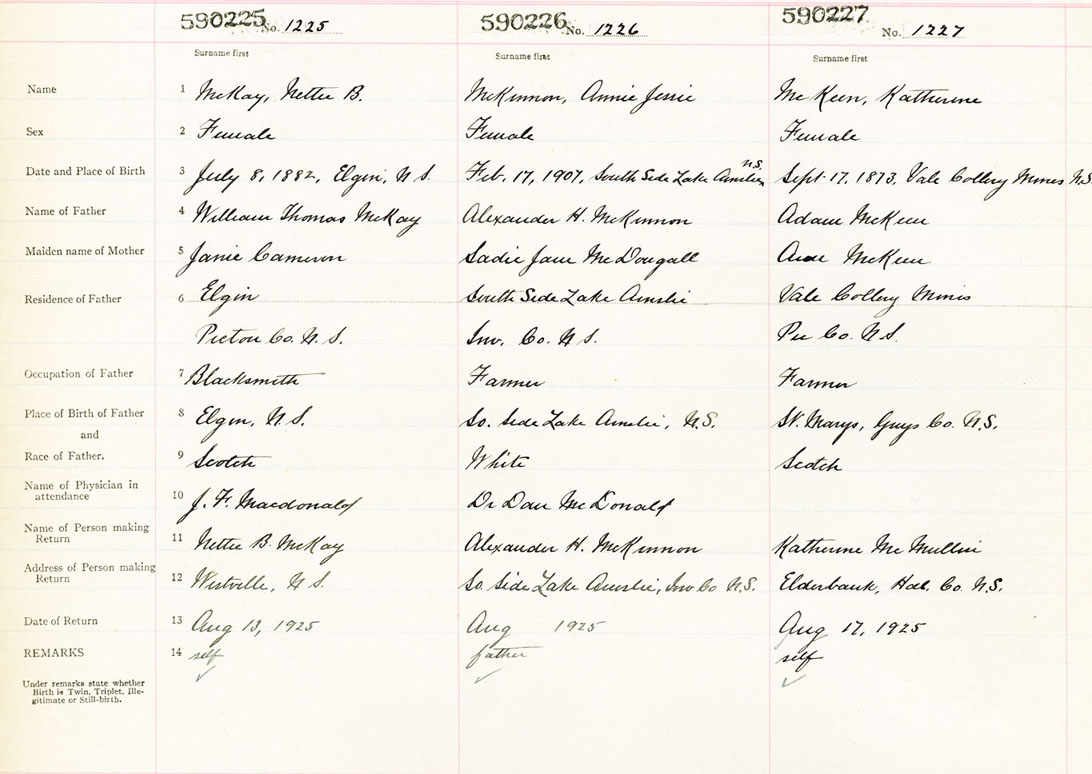 590225 No. 1225 590226 No. 1226 590227 No. 1227
Surname first Surname first Surname first
Name 1 McKay, Nettie B. McKinnon, Annie Jessie McKeen, Katherine
Sex 2 Female Female Female
N.S.
Date and Place of Birth 3 July 8, 1882, Elgin, N S. Feb. 17, 1907, South Side Lake Ainslie Sept. 17, 1873, Vale Colliery Mines N.S.
Name of Father 4 William Thomas McKay Alexander H. McKinnon Adam McKeen
Maiden name of Mother 5 Janie Cameron Sadie Jane McDougall McKeen
Residence of Father 6 Elgin South Side Lake Ainslie Vale Colliery Mines
Pictou Co. N. S. Inv. Co. N S. Co. N S.
Occupation of Father 7 Blacksmith Farmer Farmer
Place of Birth of Father 8 Elgin, N. S. So. Side Lake Ainslie, N.S. St. Marys, Guys Co. N.S.
and
Race of Father. 9 Scotch White Scotch
Name of Physician in
attendance 10 J. F. Macdonald Dr Dan McDonald
Name of Person making
Return 11 Nettie B. McKay Alexander H. McKinnon Katherine McMullin
Address of Person making
Return 12 Westville, N S. So. Side Lake Ainslie, Inv Co N.S. Elderbank, Hal. Co. N.S.
Date of Return 13 Aug 13, 1925 Aug 1925 Aug 17, 1925
REMARKS 14 self father self
Under remarks state whether
Birth is Twin, Triplet, Ille-
gitimate or Still-birth.